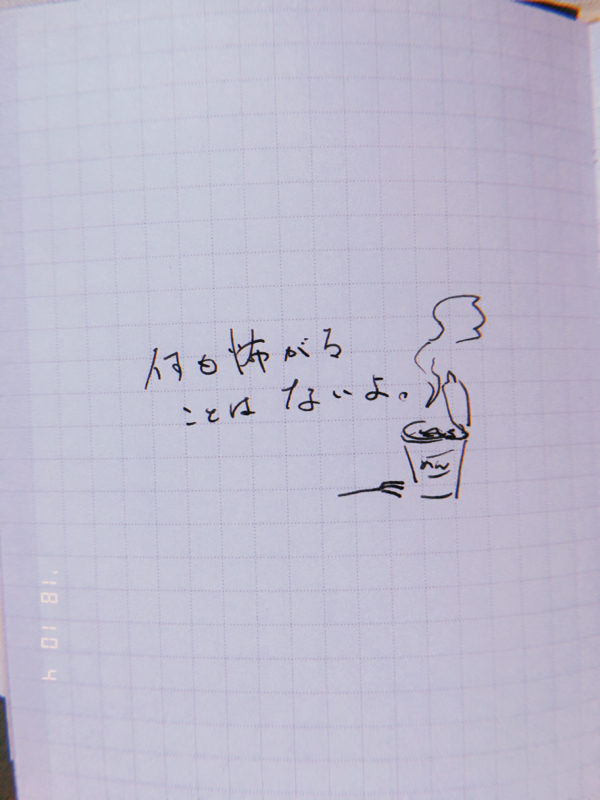 何も怖がる
ことは ないよ。
'18 10 4